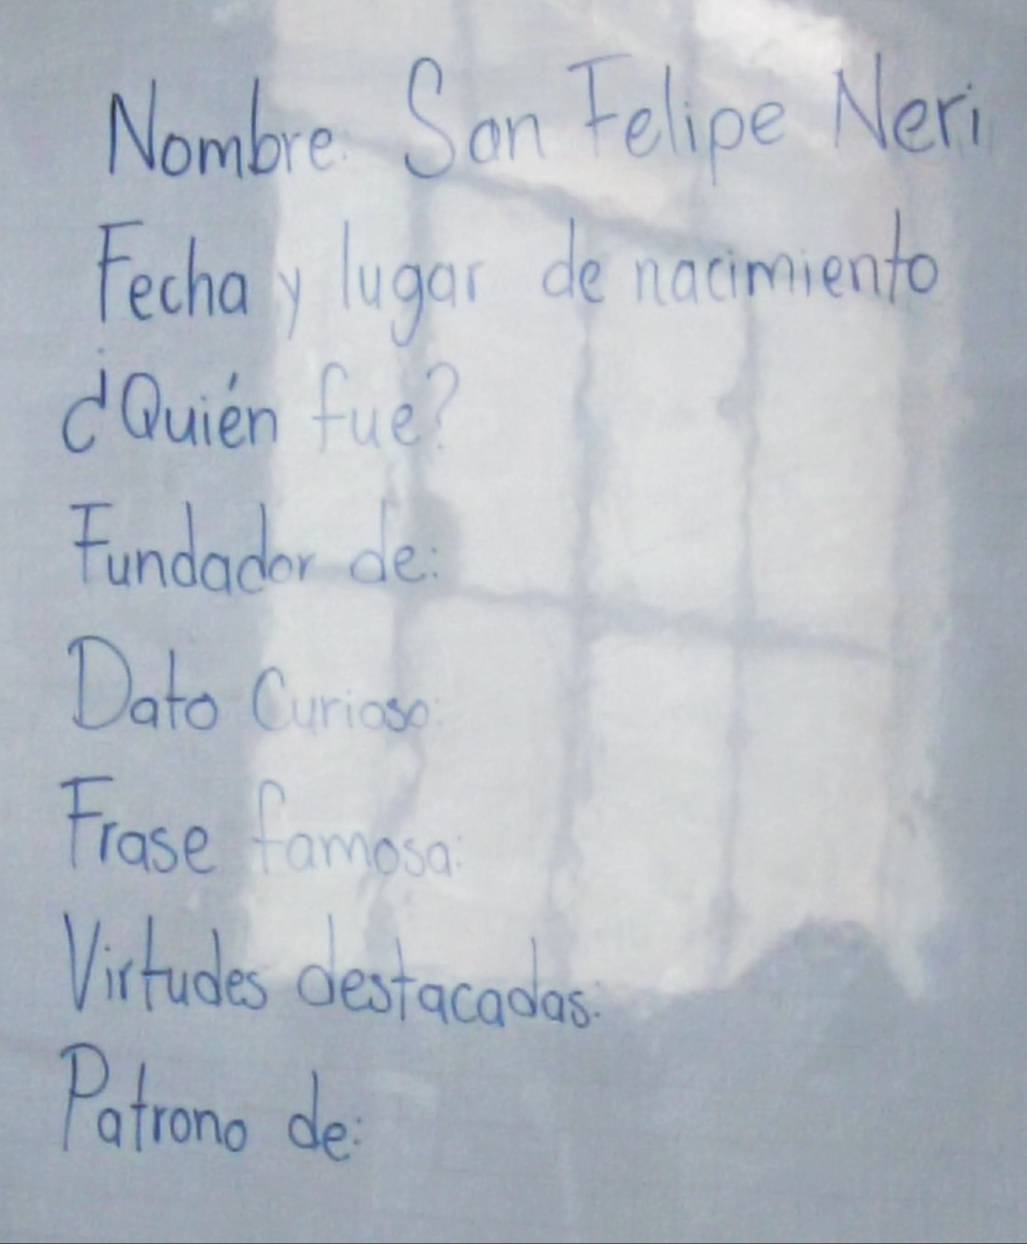 Nombre: San Felipe Neri
Fecha y lugar de nacimiento
¿Quién fue?
Fundador de:
Dato Curioso:
Frase famosa:
Virtudes destacadas:
Patrono de: